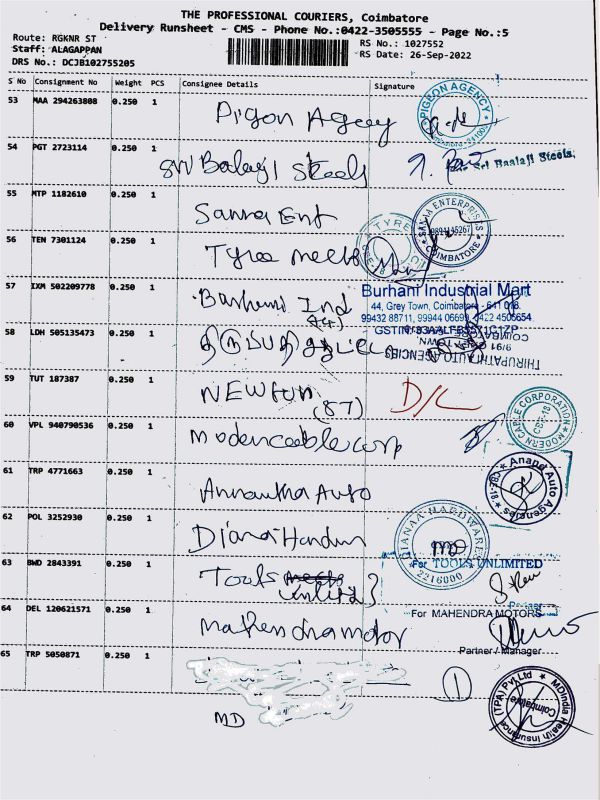 THE PROFESSIONAL COURIERS, Coimbatore
Delivery Runsheet - CMS - Phone No.:0422-3505555 - Page No.:5
Route: RGKNR ST
Staff: ALAGAPPAN
DRS No.: DCJB102755205
RS No.: 1027552
RS Date: 26-Sep-2022
S No Consignment No Weight PCS Consignee Details Signature
53 MAA 294263808 0.250 1 Pigon Agency
PIGEON AGENCY
54 PGT 2723114 0.250 1 Sri Balaji Steels
For Sri Baalaji Steels,
55 MTP 1182610 0.250 1 Sanna Ent
SANJA ENTERPRISES
9894145267
COIMBATORE
56 TEN 7301124 0.250 1 Tyree meets
TYRE
57 IXM 502209778 0.250 1 Burhani Ind
Burhani Industrial Mart
44, Grey Town, Coimbatore - 641 018.
99432 88711, 99944 06699, 0422 4506654
58 LDH 505135473 0.250 1
THIRUPATHI AUTO AGENCIES
COIMBATORE
59 TUT 187387 0.250 1 NEWFUN (87) D/L
60 VPL 940790536 1 modencablecorp
MODERN CABLE CORPORATION
CBE-18
61 TRP 4771663 0.250 1 Annantha Auto
Anand Auto Agencies
CBE-18.
62 POL 3252930 0.250 1 Diana Hardw
DIANAA HARDWARES
2216000
63 BWD 2843391 0.250 1 Tools
For TOOLS UNLIMITED
64 DEL 120621571 0.250 1 mahendra motor
For MAHENDRA MOTORS
Partner / Manager
65 TRP 5050871 0.250 1
MD
1
MDIndia Health Insurance (TPA) Pvt. Ltd
Coimbatore